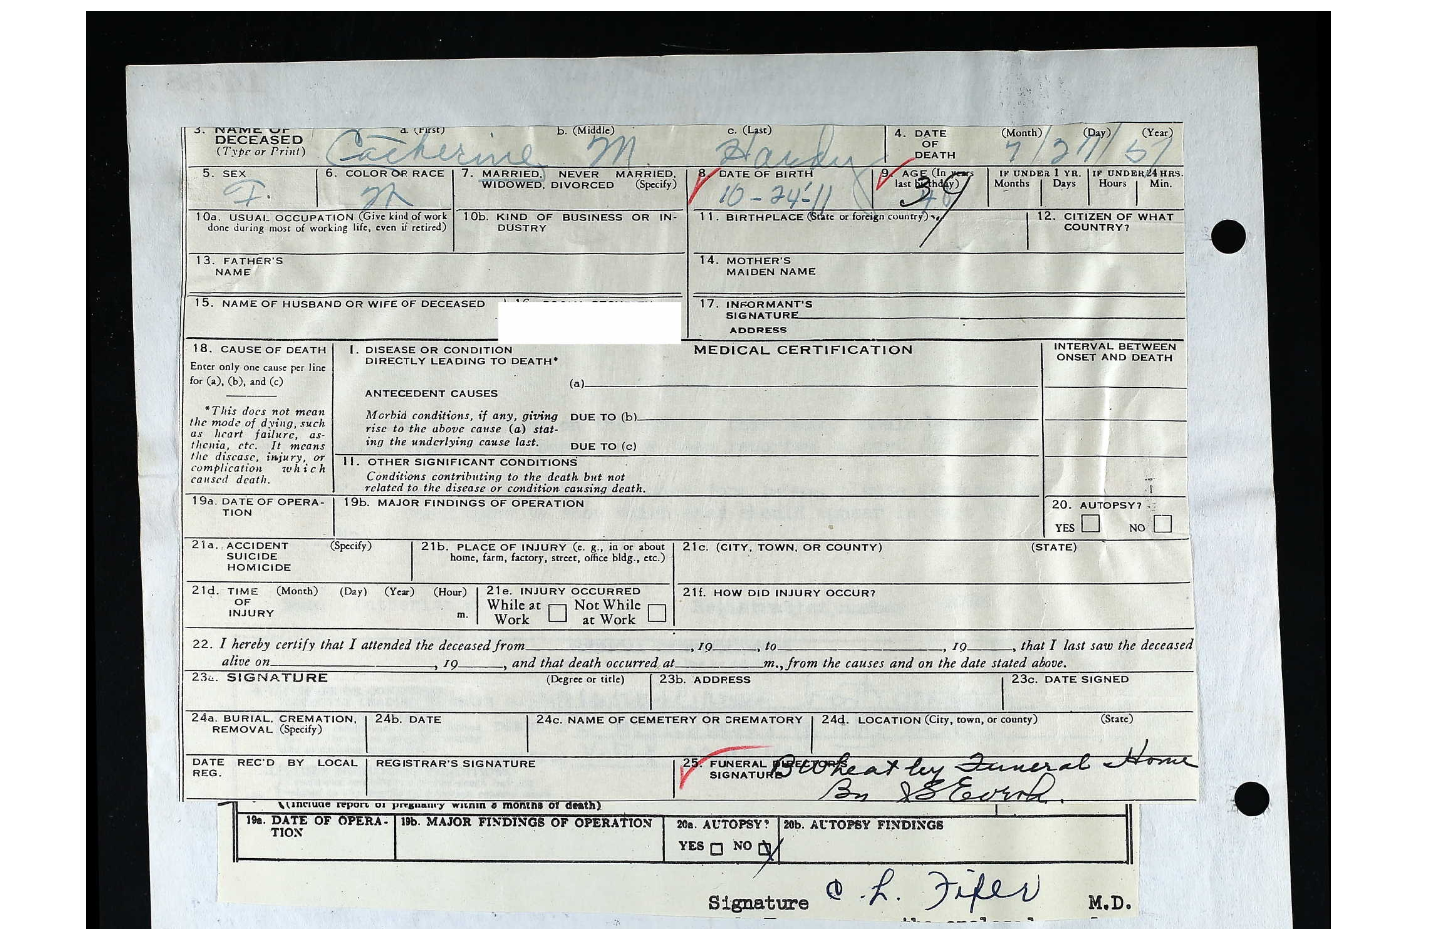 3. NAME OF DECEASED (Type or Print) a. (First) b. (Middle) c. (Last) 4. DATE OF DEATH (Month) (Day) (Year)
Catherine M. Hardy 7/27/57
5. SEX 6. COLOR OR RACE 7. MARRIED, NEVER MARRIED, WIDOWED, DIVORCED (Specify) 8. DATE OF BIRTH 9. AGE (In years last birthday) IF UNDER 1 YR. Months Days IF UNDER 24 HRS. Hours Min.
F. 10-24-11 39
10a. USUAL OCCUPATION (Give kind of work done during most of working life, even if retired) 10b. KIND OF BUSINESS OR INDUSTRY 11. BIRTHPLACE (State or foreign country) 12. CITIZEN OF WHAT COUNTRY?
13. FATHER'S NAME 14. MOTHER'S MAIDEN NAME
15. NAME OF HUSBAND OR WIFE OF DECEASED 17. INFORMANT'S SIGNATURE
ADDRESS
18. CAUSE OF DEATH
Enter only one cause per line
for (a), (b), and (c)
*This does not mean
the mode of dying, such
as heart failure, as-
thenia, etc. It means
the disease, injury, or
complication which
caused death.
I. DISEASE OR CONDITION
DIRECTLY LEADING TO DEATH*
MEDICAL CERTIFICATION
INTERVAL BETWEEN
ONSET AND DEATH
(a)
ANTECEDENT CAUSES
Morbid conditions, if any, giving DUE TO (b)
rise to the above cause (a) stat-
ing the underlying cause last. DUE TO (c)
II. OTHER SIGNIFICANT CONDITIONS
Conditions contributing to the death but not
related to the disease or condition causing death.
19a. DATE OF OPERA-
TION
19b. MAJOR FINDINGS OF OPERATION
20. AUTOPSY?
YES NO
21a. ACCIDENT (Specify)
SUICIDE
HOMICIDE
21b. PLACE OF INJURY (e. g., in or about
home, farm, factory, street, office bldg., etc.)
21c. (CITY, TOWN, OR COUNTY) (STATE)
21d. TIME (Month) (Day) (Year) (Hour)
OF
INJURY m.
21e. INJURY OCCURRED
While at Not While
Work at Work
21f. HOW DID INJURY OCCUR?
22. I hereby certify that I attended the deceased from , 19 , to , 19 , that I last saw the deceased
alive on , 19 , and that death occurred at m., from the causes and on the date stated above.
23a. SIGNATURE (Degree or title) 23b. ADDRESS 23c. DATE SIGNED
24a. BURIAL, CREMATION, REMOVAL (Specify) 24b. DATE 24c. NAME OF CEMETERY OR CREMATORY 24d. LOCATION (City, town, or county) (State)
DATE REC'D BY LOCAL REG. REGISTRAR'S SIGNATURE 25. FUNERAL DIRECTOR'S SIGNATURE
Wheatley Funeral Home
(Include report of pregnancy within 8 months of death)
19a. DATE OF OPERA-
TION
19b. MAJOR FINDINGS OF OPERATION
20a. AUTOPSY?
YES NO
20b. AUTOPSY FINDINGS
Signature C. L. Fifer M.D.